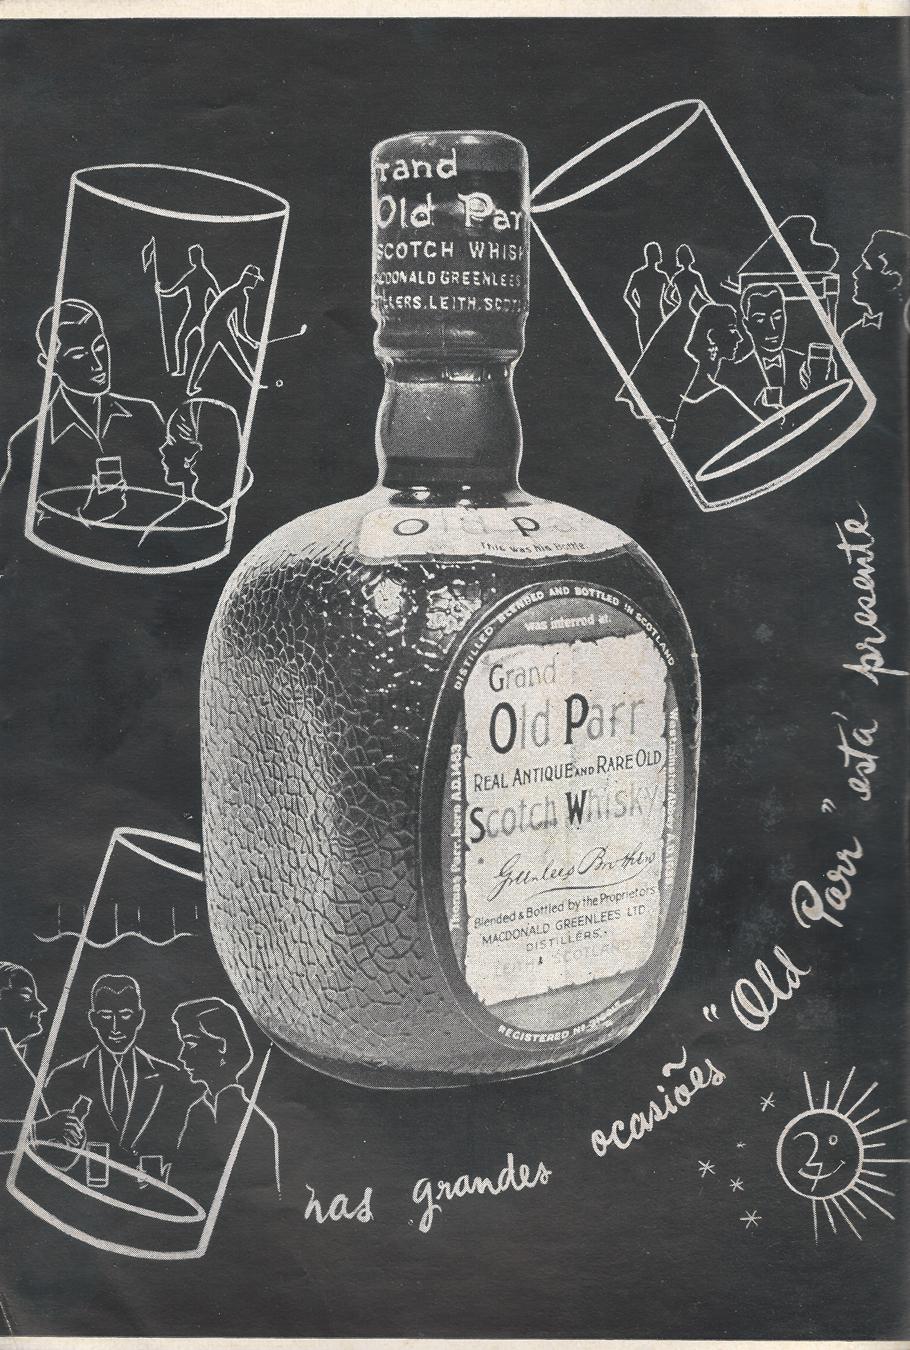 rand
Old Par
SCOTCH WHIS
DONALD GREENLEES
LERS. LEITH, SCOT
Old Pa
This was his Bottle
DISTILLED BLENDED AND BOTTLED IN SCOTLAND
was interred at
Grand
Old Parr
REAL ANTIQUE AND RARE OLD
Scotch Whisky
Greenlees Brothers
Blended & Bottled by the Proprietors
MACDONALD GREENLEES LTD.
DISTILLERS.
LEITH SCOTLAND
Thomas Parr born AD 1483
REGISTERED No
nas grandes ocasiões "Old Parr" está presente